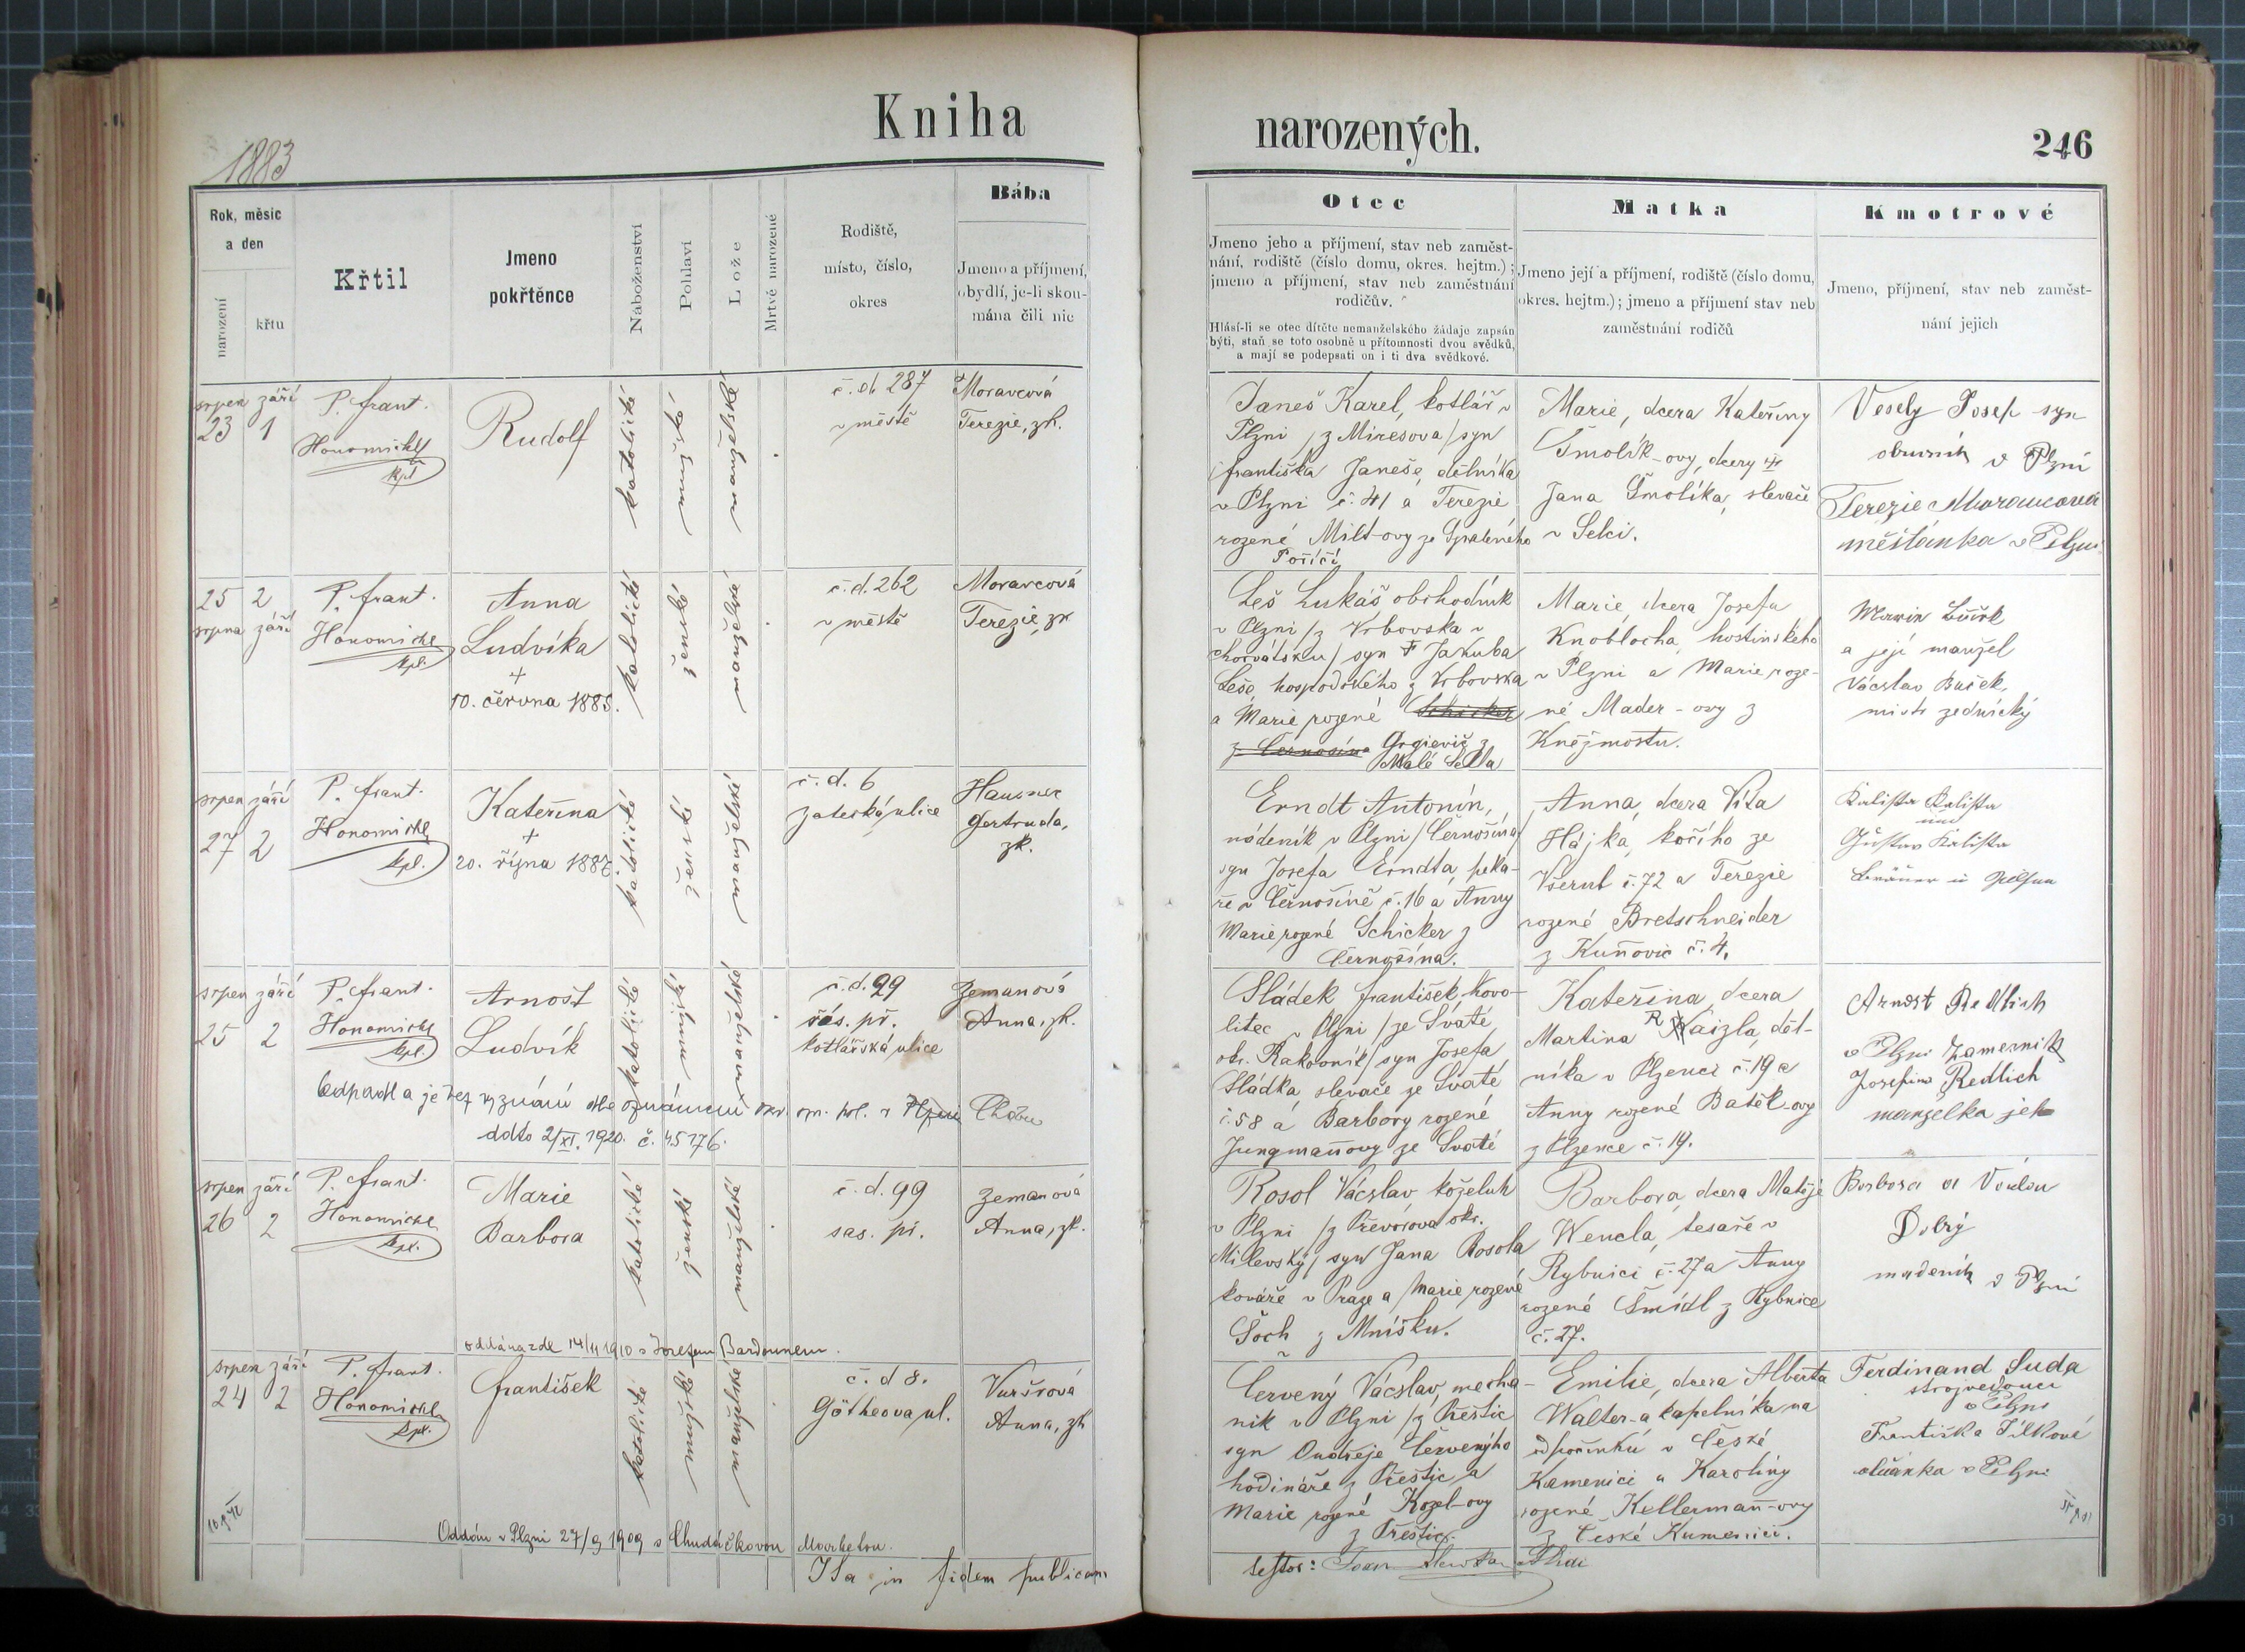 Kniha
narozených.
246
1883
Rok, měsíc
a den
narození
křtu
Křtil
Jmeno
pokřtěnce
Náboženství
Pohlaví
Lože
Mrtvé narozené
Rodiště,
místo, číslo,
okres
Bába
Jmeno a příjmení,
obydlí, je-li zkou-
mána čili nic
Otec
Jmeno jeho a příjmení, stav neb zaměst-
nání, rodiště (číslo domu, okres. hejtm.);
jmeno a příjmení, stav neb zaměstnání
rodičův.
Hlásí-li se otec dítěte nemanželského žádaje zapsán
býti, staň se toto osobně u přítomnosti dvou svědků,
a mají se podepsati on i ti dva svědkové.
Matka
Jmeno její a příjmení, rodiště (číslo domu,
okres. hejtm.); jmeno a příjmení stav neb
zaměstnání rodičů
Kmotrové
Jmeno, příjmení, stav neb zaměst-
nání jejich
srpen září
23 1
P. Frant.
Honomichl
kpl
Rudolf
katolické
mužské
manželské
č. d. 287
v městě
Moravcová
Terezie, zk.
Janeš Karel, kotlář v
Plzni / z Mirešova / syn
Františka Janeše, dělníka
v Plzni č. 41 a Terezie
rozené Milt-ovy ze Spáleného
Poříčí
Marie, dcera Kateřiny
Smolík-ovy, dcery
Jana Smolíka, slevače
v Selci.
Vesely Josef syn
obuvník v Plzni
Terezie Moravcová
měšťánka v Plzni
25 2
srpna září
P. Frant.
Honomichl
kpl.
Anna
Ludvíka
+
10. června 1885.
katolické
ženské
manželské
č. d. 262
v městě
Moravcová
Terezie, zk
Leš Lukáš obchodník
v Plzni / z Vrbovska v
Chorvátsku / syn † Jakuba
Leše, hospodského z Vrbovska
a Marie rozené Schicker
z Černošína Grgievič z
Malé Sella
Marie, dcera Josefa
Knoblocha, hostinského
v Plzni a Marie roze-
né Mader-ovy z
Kněžmostu.
a její manžel
Václav Buček,
mistr zednický
srpen září
27 2
P. Frant.
Honomichl
kpl.
Kateřina
+
20. října 1887.
katolické
ženské
manželské
č. d. 6
žatecká ulice
Hausner
Gertruda,
zk.
Erndt Antonín,
nádeník v Plzni / Černošína
syn Josefa Erndta, peka-
ře v Černošíně č. 16 a Anny
Marie rozené Schicker z
Černošína.
Anna, dcera Víta
Hájka, kočího ze
Všerub č. 72 a Terezie
rozené Bretschneider
z Kuňovic č. 4.
Kalista
und
Gustav Kalista
srpen září
25 2
P. Frant.
Honomichl
kpl.
Arnošt
Ludvík
katolické
mužské
manželské
č. d. 99
sás. př.
kotlářská ulice
Zemanová
Anna, zk.
Odpadl a je bez vyznání dle oznámení okr. spr. pol. v Plzni Chebu
ddto 2/XI. 1920. č. 45176.
Sládek František, kovo-
litec v Plzni / ze Svaté,
okr. Rakovník / syn Josefa
Sládka, slevače ze Svaté
č. 58 a Barbory rozené
Jungmanovy ze Svaté
Kateřina, dcera
Martina Raizla, děl-
níka v Plzenci č. 19 a
Anny rozené Batěk-ovy
z Plzence č. 19.
Arnost Redlich
v Plzni zamečník
Josefina Redlich
manzelka jeh
srpen září
26 2
P. Frant.
Honomichl
kpl.
Marie
Barbora
katolické
ženské
manželské
č. d. 99
sas. př.
Zemanová
Anna, zk.
oddána zde 14/II 1910 s Josefem Bardounem.
Rosol Václav, koželuh
v Plzni / z Převorova okr.
Milevský / syn Jana Rosola
kováře v Praze a Marie rozené
Šoch z Mníšku.
Barbora, dcera Matěje
Wencla, tesaře v
Rybnici č. 27 a Anny
rozené Šmídl z Rybnice
č. 27.
Barbora
Dobrý
v Plzni
srpen září
24 2
P. Frant.
Honomichl
kpl.
František
katolické
mužské
manželské
č. d 8.
Götheova ul.
Vuršrová
Anna, zk
Oddán v Plzni 27/9 1909 s Chudáčkovou Markétou.
Červený Václav, mecha-
nik v Plzni / z Přeštic
syn Ondřeje Červeného
hodináře z Přeštic a
Marie rozené Kozel-ovy
z Přeštic.
Emilie, dcera Alberta
Walter-a kapelníka na
odpočinku v České
Kamenici a Karoliny
rozené Kellermann-ovy
z České Kamenici.
Ferdinand Suda
strojvedoucí
v Plzni
Františka Pílková
občanka v Plzni
Ita in fidem publicam
testor: